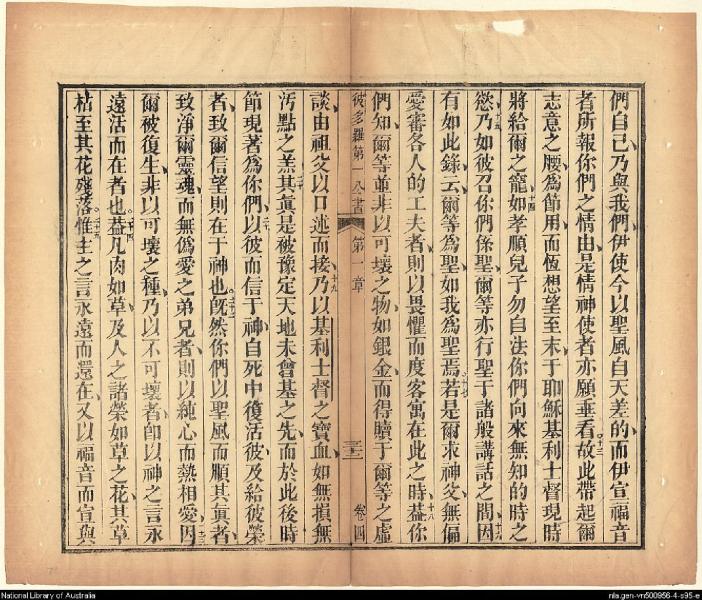 們自己乃與我們伊使今以聖風自天差的而伊宣福音
者所報你們之情由是情神使者亦願垂看十三故此帶起爾
志意之腰為節用而恆想望至末于耶穌基利士督現時
將給爾之寵十四如孝順兒子勿自法你們向來無知的時之
慾十五乃如彼召你們係聖爾等亦行聖于諸般講話之間十六因
有如此錄云爾等為聖如我為聖焉十七若是爾求神父無偏
愛審各人的工夫者則以畏懼而度客寓在此之時十八蓋你
們知爾等並非以可壞之物如銀金而得贖于爾等之虛
彼多羅第一公書 第一章 三十三 卷四
談由祖父以口述而接十九乃以基利士督之寶血如無損無
污點之羔二十其真是被豫定天地未曾基之先而於此後時
節現著為你們二十一以彼而信于神自死中復活彼及給彼榮
者致爾信望則在于神也二十二既然你們以聖風而順其真者
致淨爾靈魂而無偽愛之弟兄者則以純心而熱相愛二十三因
爾被復生非以可壞之種乃以不可壞者即以神之言永
遠活而在者也二十四蓋凡肉如草及人之諸榮如草之花其草
枯至其花殘落二十五惟主之言永遠而還在又以福音而宣與
National Library of Australia
nla.gen-vn500956-4-s95-e